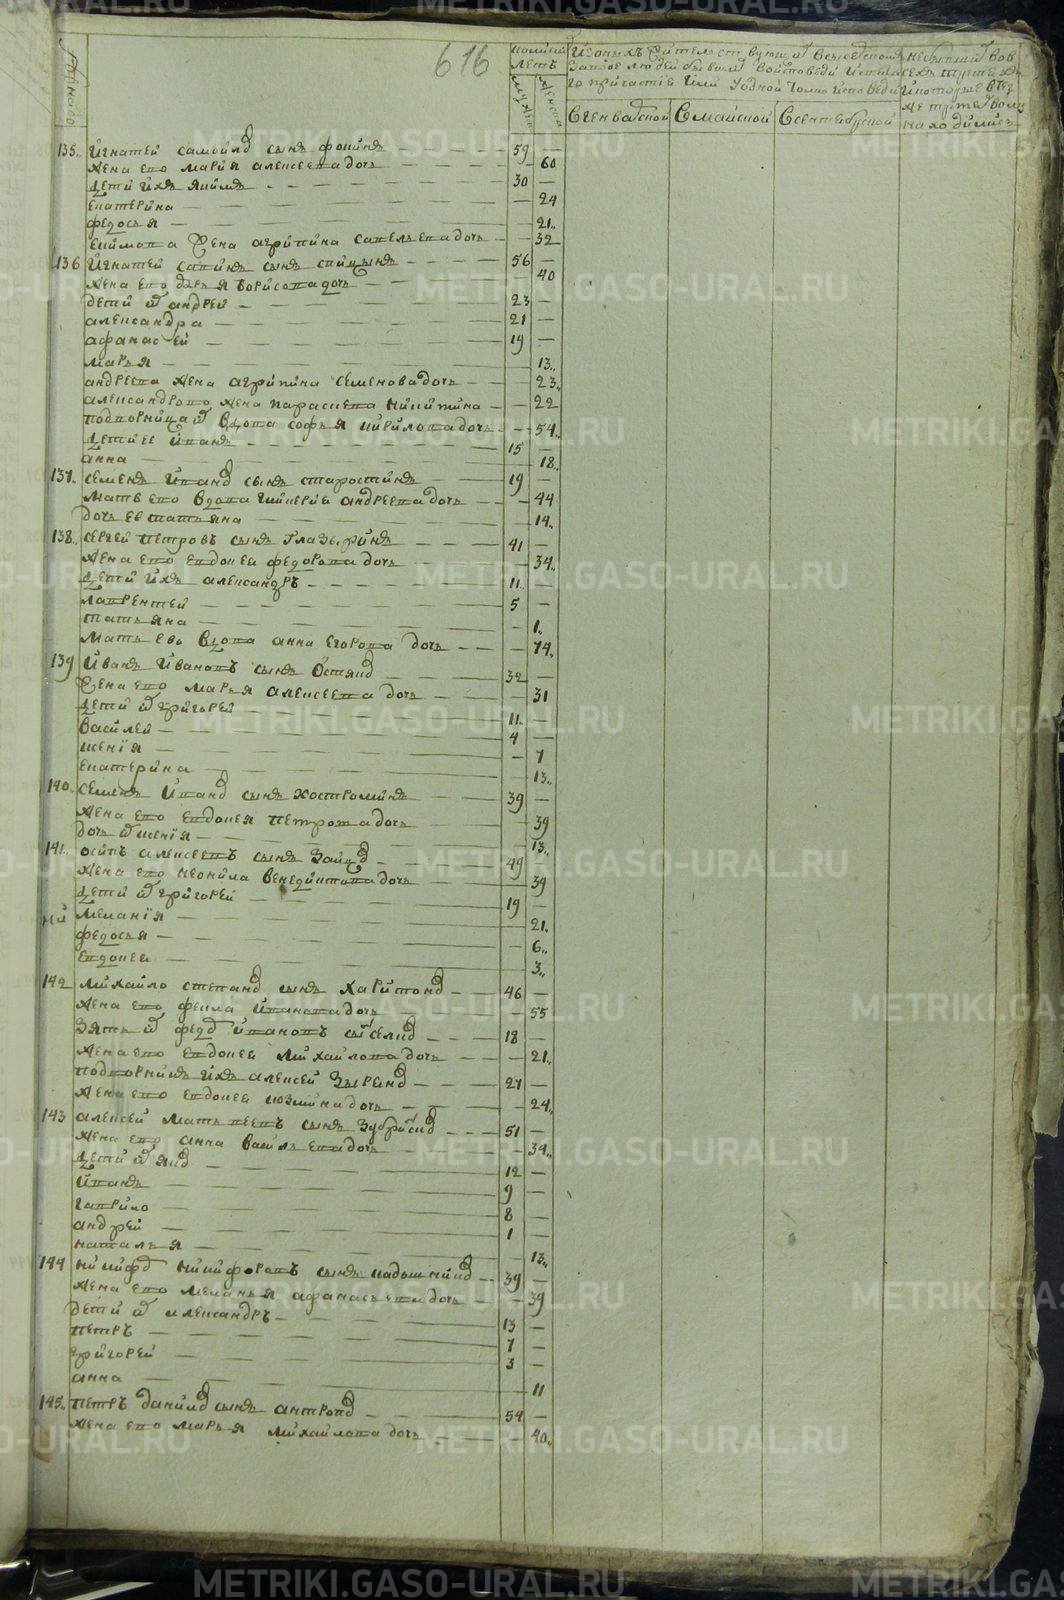 616
135. Игнатей Самойлов сынъ Фокинъ 59
жена ево Марья Алексеева дочь 60
дети ихъ Якимъ 30
Екатерина 24
Федосья 21
Екимова жена Агрипина Савельева дочь 32
136 Игнатей Савинъ сынъ Спицынъ 56
жена ево Дарья Борисова дочь 40
дети Андрей 23
Александра 21
Афанасей 19
Марья 13
Андреева жена Агрипина Семенова дочь 23
Александрова жена Параскева Никитина 22
подворница вдова Софья Кирилова дочь 54
дети ее Иванъ 15
Анна 18
137. Семенъ Иванов сынъ Старостинъ 19
мать ево вдова Гликерия Андреева дочь 44
дочь ее Татьяна 14
138. Сергей Петровъ сынъ Глазыринъ 41
жена ево Евдокея Федорова дочь 34
дети ихъ Александръ 11
Лаврентей 5
Татьяна 1
мать ево вдова Анна Егорова дочь 74
139 Иванъ Ивановъ сынъ 32
жена ево Марья Алексеева дочь 31
дети Григорей 11
Василей 4
Ксенїя 7
Екатерина 13
140. Семенъ Иванов сынъ Костроминъ 39
жена ево Евдокея Петрова дочь 39
дочь Ксенїя 13
141. Осипъ Алексеевъ сынъ Зайцов 49
жена ево Неонила Венедиктова дочь 39
дети Григорей 19
Меланїя 21
Федосья 6
Евдокея 3
142 Михайло Степанов сынъ Харитонов 46
жена ево Фекла Иванова дочь 55
зять Федор Ивановъ 18
жена ево Евдокея Михайлова дочь 21
подворникъ ихъ Алексей Зырянов 27
жена ево Евдокея Козмина дочь 24
143 Алексей Матвеевъ сынъ 51
жена ево Анна Васильева дочь 34
дети Яков 12
Иванъ 9
Гаврило 8
Андрей 1
Наталья 13
144 Никифор Никифоровъ сынъ Кадошников 39
жена ево Меланья Афанасьева дочь 39
дети Александръ 13
Петръ 7
Григорей 3
Анна 11
145. Петръ Данилов сынъ Антропов 54
жена ево Марья Михайлова дочь 40
METRIKI.GASO-URAL.RU